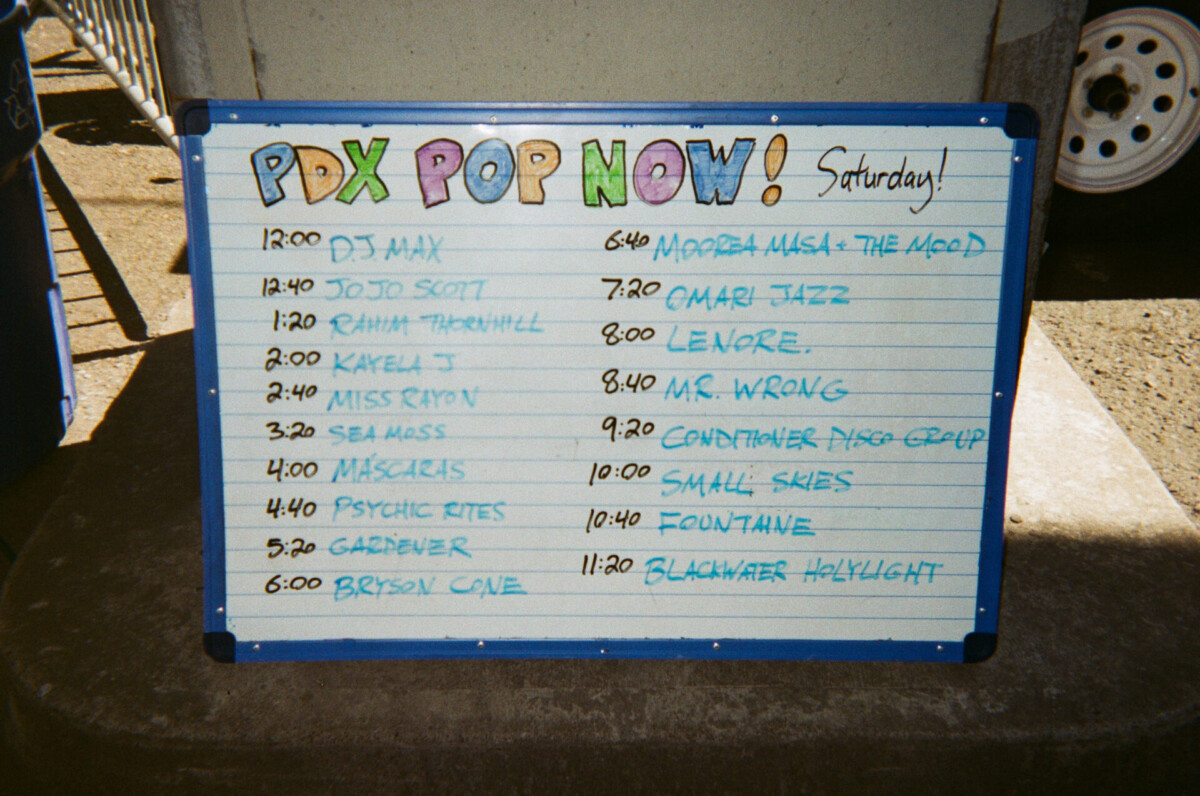 PDX POP NOW! Saturday!
12:00 DJ MAX
12:40 JOJO SCOTT
1:20 RAHIM THORNHILL
2:00 KAYELA J
2:40 MISS RAYON
3:20 SEA MOSS
4:00 MÁSCARAS
4:40 PSYCHIC RITES
5:20 GARDENER
6:00 BRYSON CONE
6:40 MOOREA MASA + THE MOOD
7:20 OMARI JAZZ
8:00 LENORE.
8:40 MR. WRONG
9:20 CONDITIONER DISCO GROUP
10:00 SMALL SKIES
10:40 FOUNTAINE
11:20 BLACKWATER HOLYLIGHT